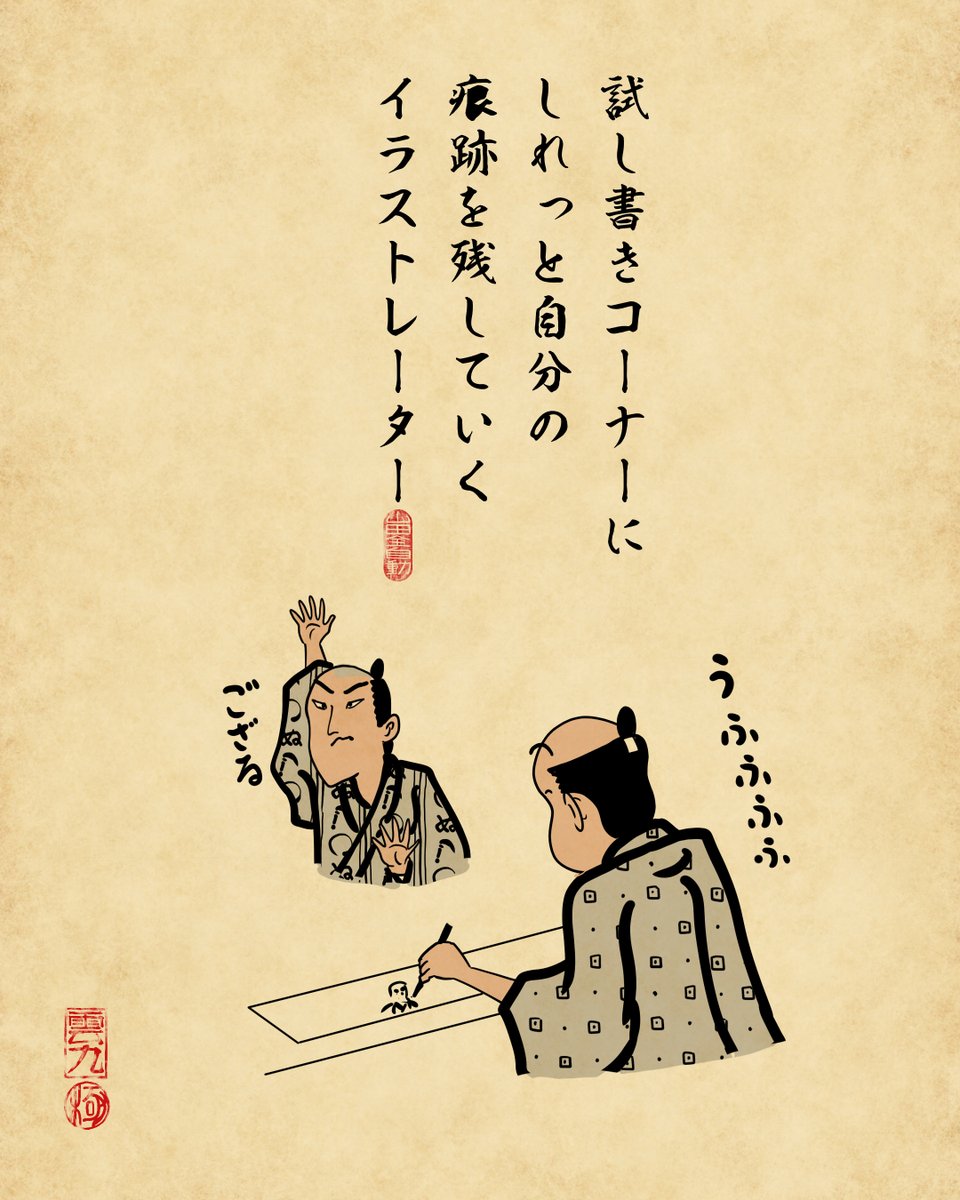 試し書きコーナーに
しれっと自分の
痕跡を残していく
イラストレーター
ござる
うふふふふ